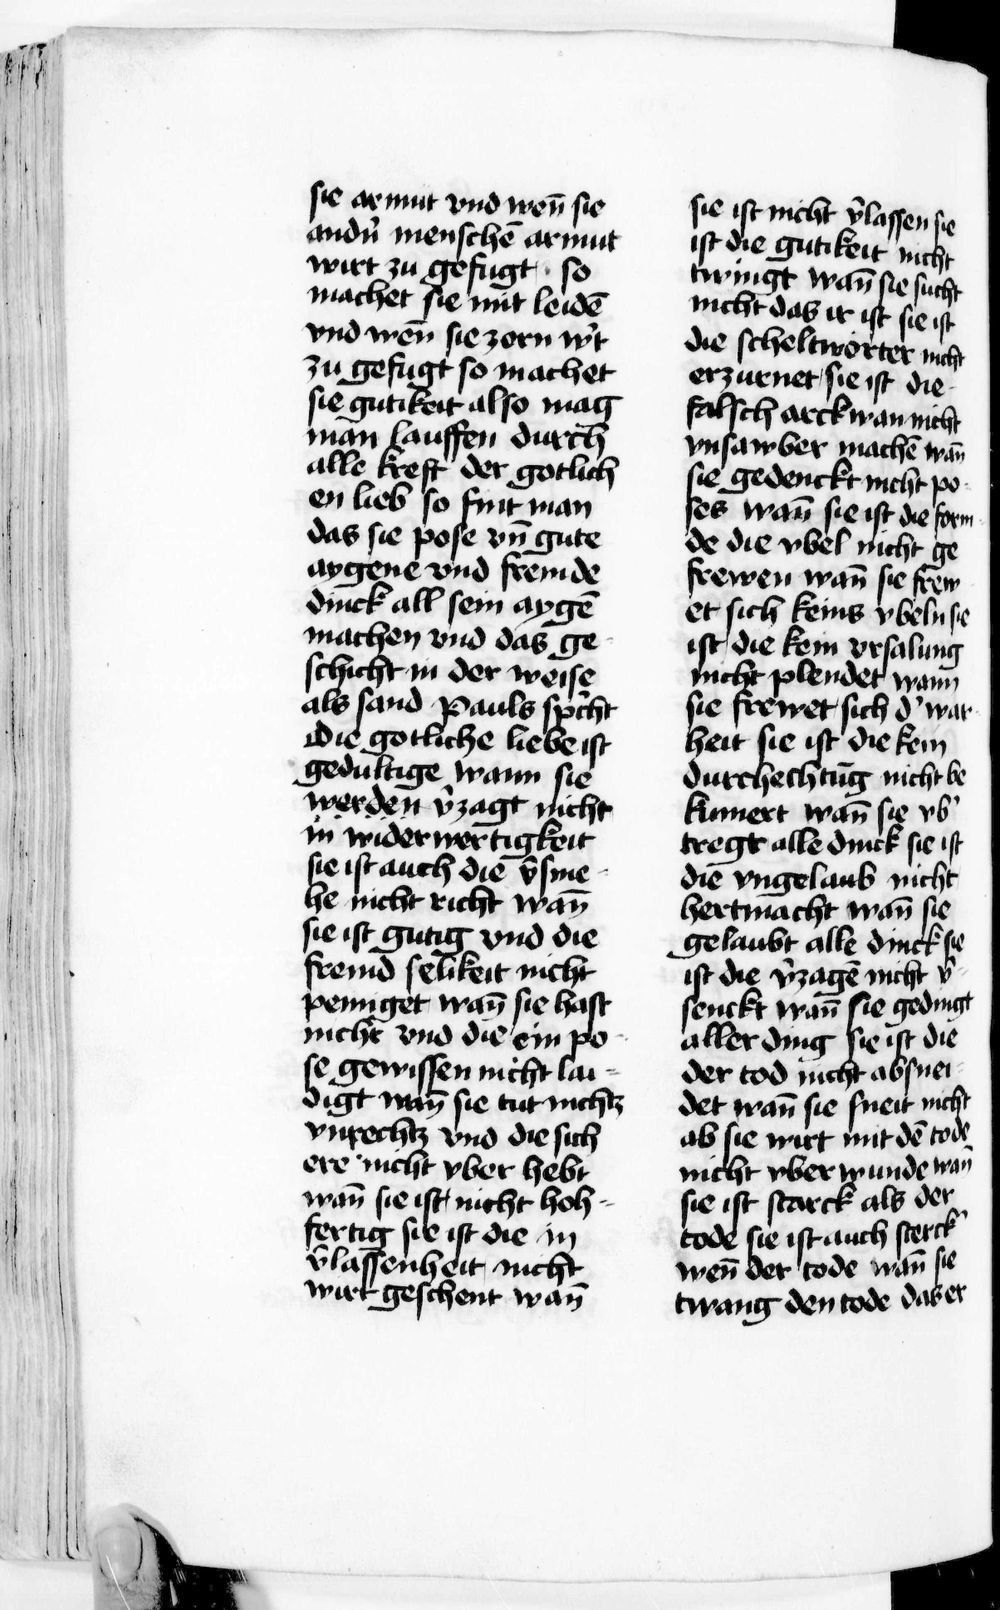 sie armut vnd wen̄ sie
andn̾ menschē armut
wirt zu gefugt · so
machet sie mit leidē
vnd wen̄ sie zorn wˀt
zu gefugt so machet
sie gutikeit also mag
man lauffen durch
alle kreft der gotlich
en lieb so fint man
das sie pose vn̄ gute
aygene vnd fremde
dinck all sein aygē
machen vnd das ge-
schicht in der weise
als sand Pauls spˀcht
Die gotliche liebe ist
gedultige wann sie
werden vˀzagt nicht
in widerwertigkeit
sie ist auch die vˀsme-
he nicht richt wan̄
sie ist gutig vnd die
fremd selikeit nicht
peiniget wan̄ sie hast
nicht vnd die ein po-
se gewissen nicht lai-
digt wan̄ sie tut nichtz
vnrechtz vnd die sich
ere nicht vber hebt
wan̄ sie ist nicht hoh-
fertig sie ist die in
vˀlassenheit nicht
wirt geschent wan̄
sie ist nicht vˀlassen sie
ist die gutikeit nicht
twingt wan̄ sie sucht
nicht das ir ist sie ist
die scheltworter nicht
erzurnet sie ist die-
falsch arckwan nicht
vnsawber machē wan̄
sie gedenckt nicht po-
ses wan̄ sie ist die from-
de die vbel nicht ge
frewen wan̄ sie frew-
et sich keins vbeln sie
ist die kein vrsalung
nicht plendet wann
sie frewet sich dˀ war-
heit sie ist die kein
durchechtūg nicht be
kumert wan̄ sie vbˀ
tregt alle dinck sie ist
die vngelaub nicht
hertmacht wan̄ sie
gelaubt alle dinck sie
ist die vˀzagē nicht vˀ-
senckt wan̄ sie gedingt
aller ding sie ist die
der tod nicht absnei-
det wan̄ sie sneit nicht
ab sie wirt mit dē tode
nicht vber wunde wan̄
sie ist starck als der
tode sie ist auch sterckˀ
wen̄ der tode wan̄ sie
twang den tode das er